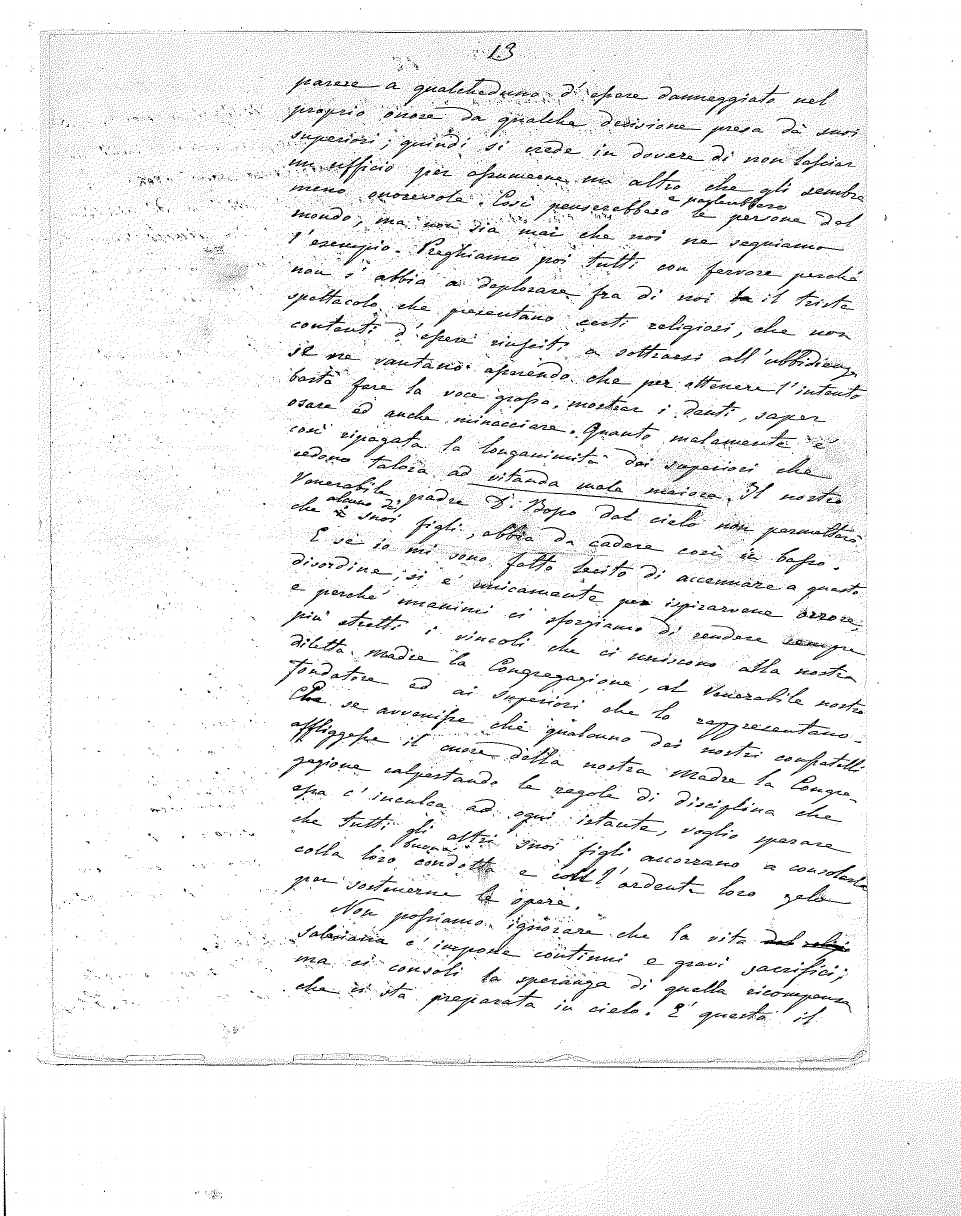 13
parere a qualcheduno d'essere danneggiato nel
proprio onore da qualche decisione presa dà suoi
superiori; quindi si crede in dovere di non lasciar
un ufficio per assumerne un altro che gli sembra
meno onorevole. Così penserebbero e parlerebbero le persone del
mondo, ma non sia mai che noi ne seguiamo
l'esempio. Preghiamo poi tutti con fervore perché
non s'abbia a deplorare fra di noi il triste
spettacolo che presentano certi religiosi, che non
contenti d'essere riusciti a sottrarsi all'ubbidienza
se ne vantano asserendo che per ottenere l'intento
basta fare la voce grossa, mostrar i denti, saper
osare ed anche minacciare. Quanto malamente è
così ripagata la longanimità dei superiori che
cedono talora ad vitanda mala maiora. Il nostro
Venerabile padre D. Bosco dal cielo non permetterà
che alcuno di suoi figli, abbia da cadere così in basso.
E se io mi sono fatto lecito di accennare a questo
disordine, si è unicamente per ispirarvene orrore,
e perché unanimi ci sforziamo di rendere sempre
più stretti i vincoli che ci uniscono alla nostra
diletta madre la Congregazione, al Venerabile nostro
fondatore ed ai superiori che lo rappresentano.
Che se avvenisse che qualcuno dei nostri confratelli
affliggesse il cuore della nostra madre la Congre-
gazione calpestando le regole di disciplina che
essa c'inculca ad ogni istante, voglio sperare
che tutti gli altri suoi figli accorrano a consolarla
colla loro buona condotta e coll'ardente loro zelo
per sostenerne le opere.
Non possiamo ignorare che la vita del relig
salesiana c'impone continui e gravi sacrifici;
ma ci consoli la speranza di quella ricompensa
che ci sta preparata in cielo. È questa il